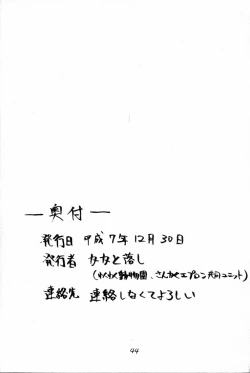 ―奥付―
発行日 平成7年12月30日
発行者 ななと落し
(わくわく動物園、さんかくエプロン共同ユニット)
連絡先 連絡しなくてよろしい
44